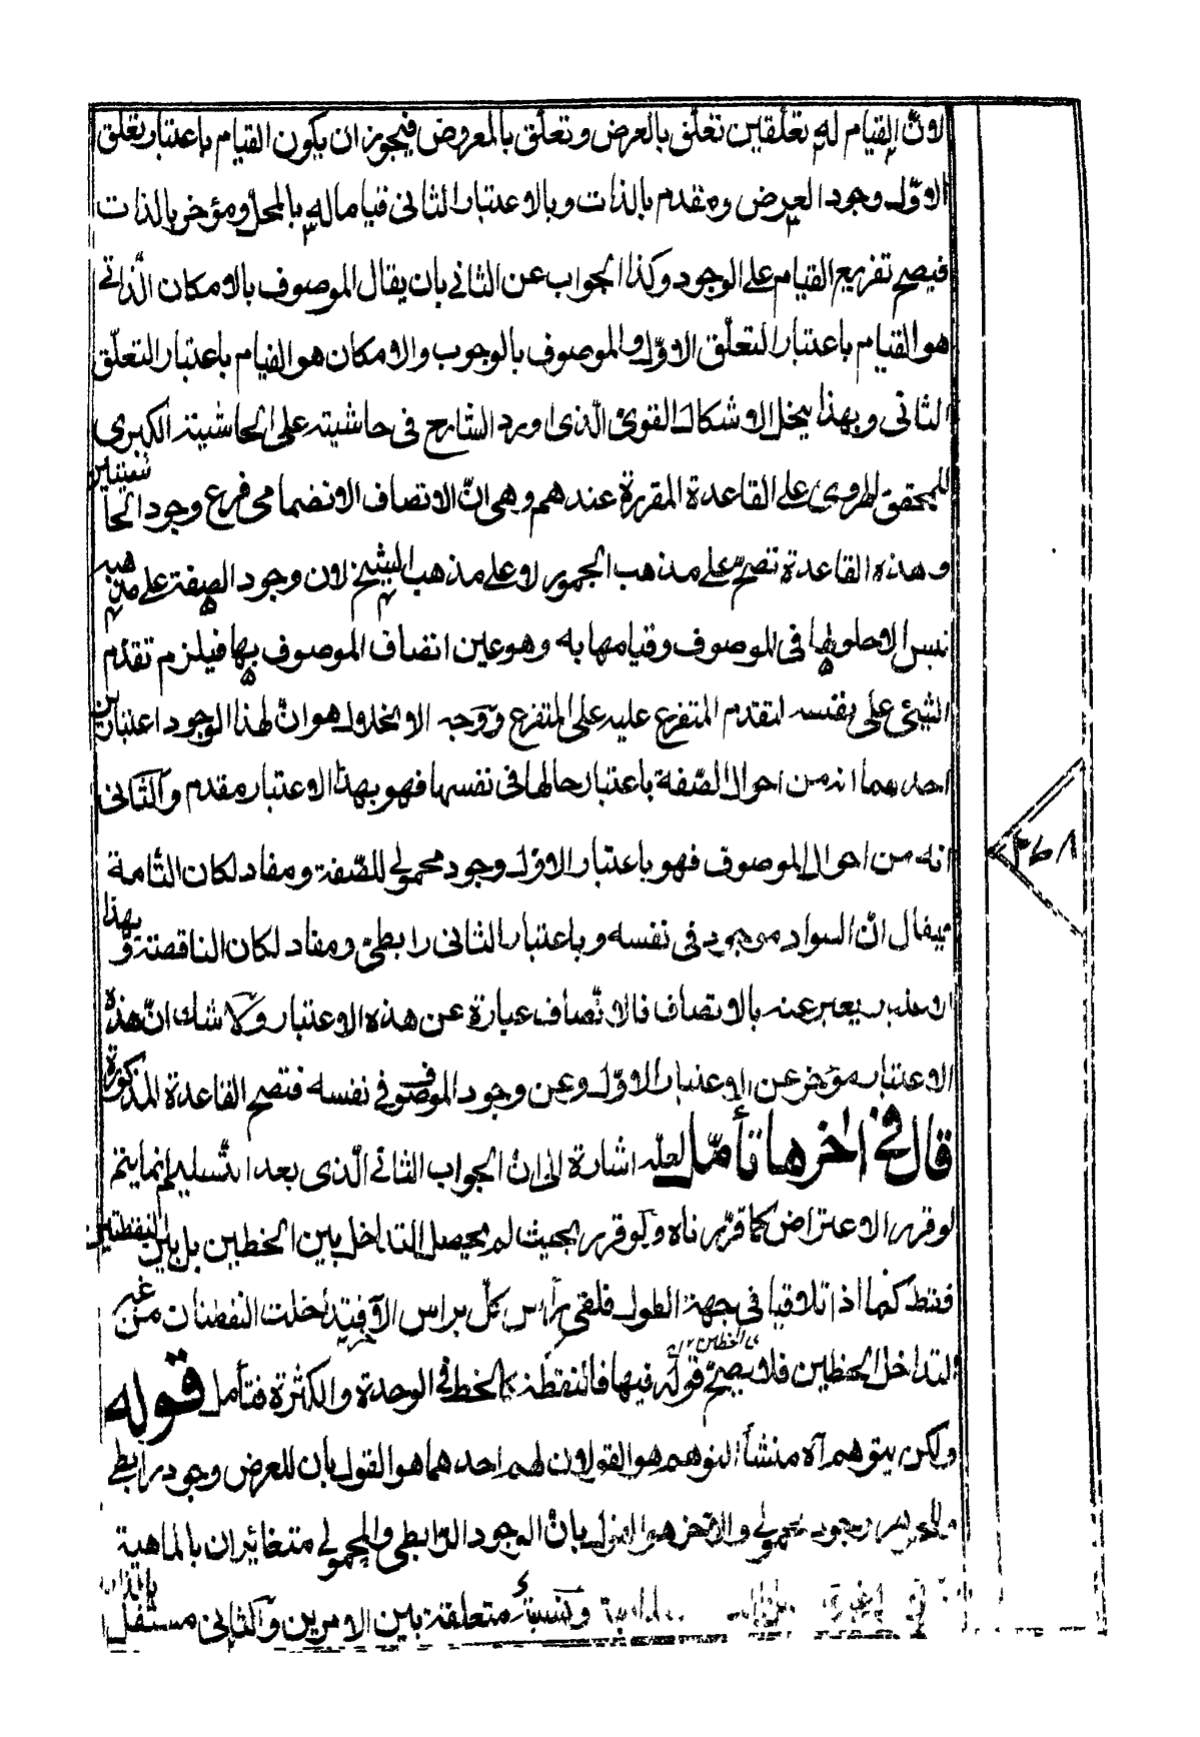 لانّ القيام له تعلّقين تعلّق بالعرض وتعلّق بالمعروض فيجوز ان يكون القيام باعتبار تعلق
الاوّل وجود العرض ومقدم بالذات وبالاعتبار الثانى قياما له بالمحل ومؤخر بالذات
فيصح تفريع القيام على الوجود وكذا الجواب عن الثانى بان يقال الموصوف بالامكان الذّاتى
هو القيام باعتبار التعلّق الاوّل والموصوف بالوجوب والامكان هو القيام باعتبار التعلّق
الثانى وبهذا ينحل الاشكال القوىّ الّذى اورد الشارح فى حاشيته على الحاشية الكبرى
للمحقق الهروى على القاعدة المقررة عندهم وهى انّ الاتصاف الانضمامى فرع وجود الحا شيتين
وهذه القاعدة تصحّ على مذهب الجمهور لا على مذهب الشيخ لان وجود الصفة على مذ هبه
ليس الا حلولها فى الموصوف وقيامها به وهو عين اتصاف الموصوف بها فيلزم تقدّم
الشيئ على نفسه لتقدم المتفرع عليه على المتفرع ووجه الانحلال هو انّ لهذا الوجود اعتبارين
احدهما انه من احوال الصّفة باعتبار حالها فى نفسها فهو بهذا الاعتبار مقدم والثّانى
انه من احوال الموصوف فهو باعتبار الاوّل وجود محمولى للصّفة ومفاد لكان التّامة
فيقال انّ السواد موجود فى نفسه وباعتبار الثانى رابطىّ ومفاد لكان الناقصة و بهذا
الاعتبار يعبر عنه بالاتصاف فالاتّصاف عبارة عن هذه الاعتبار ولا شك انّ هذه
الاعتبار مؤخر عن الاعتبار الاوّل وعن وجود الموصوف فى نفسه فتصح القاعدة المذكورة
قال فى اخرها تأمّل لعله اشارة الى انّ الجواب الثانى الّذى بعد التّسليم انما يتم
لو قرر الاعتراض كما قرّرناه ولو قرر بحيث لم يحصل التداخل بين الخطين بل بين النقطتين
فقط كما اذا تلاقيا فى جهة الطول فلقى رأس كلّ براس الآخر فتداخلت النقطتان من غير
التداخل الخطين فلا يصحّ قوله فيها فالنقطة كالخط فى الوحدة والكثرة فتأمل قوله
ى الخطين ١٢
ولكن يتوهم آه منشأ التوهم هو القولان لهم احدهما هو القول بان للعرض وجود رابطى
وجود محمولى والآخر هو القول بانّ الوجود الرّابطى والمحمولى متغائران بالماهية
ونسبة متعلقة بين الامرين والثانى مستقل بالذات
٢٦٨